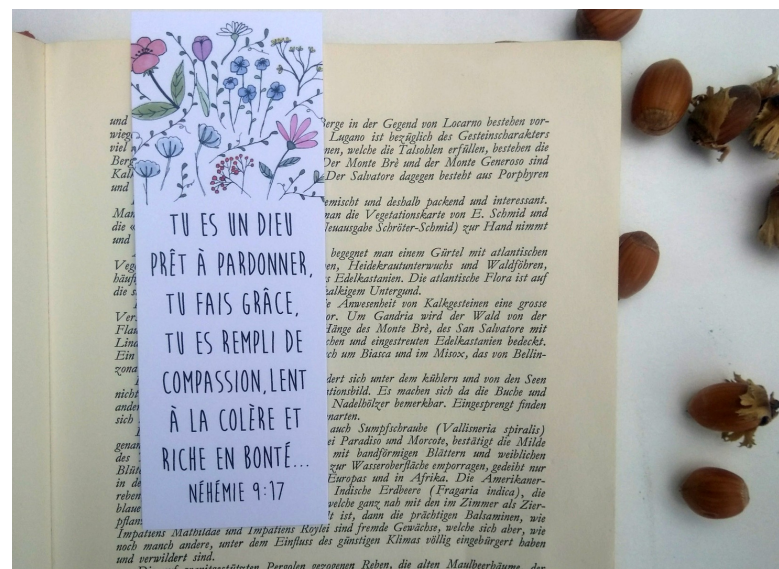 TU ES UN DIEU
PRÊT À PARDONNER,
TU FAIS GRÂCE,
TU ES REMPLI DE
COMPASSION, LENT
À LA COLÈRE ET
RICHE EN BONTÉ...
NÉHÉMIE 9:17
und Berge in der Gegend von Locarno bestehen vor-
wieg Lugano ist bezüglich des Gesteinscharakters
viel nen, welche die Talsohlen erfüllen, bestehen die
Berg Der Monte Brè und der Monte Generoso sind
Kalk Der Salvatore dagegen besteht aus Porphyren
und
emischt und deshalb packend und interessant.
Man man die Vegetationskarte von E. Schmid und
die Neuausgabe Schröter-Schmid) zur Hand nimmt
und
begegnet man einem Gürtel mit atlantischen
Vege en, Heidekrautunterwuchs und Waldföhren,
häufi s Edelkastanien. Die atlantische Flora ist auf
die s kalkigem Untergrund.
ie Anwesenheit von Kalkgesteinen eine grosse
Vers or. Um Gandria wird der Wald von der
Flau Hänge des Monte Brè, des San Salvatore mit
Lind chen und eingestreuten Edelkastanien bedeckt.
Ein ch um Biasca und im Misox, das von Bellin-
zona
dert sich unter dem kühlern und von den Seen
nicht tionsbild. Es machen sich da die Buche und
ander Nadelhölzer bemerkbar. Eingesprengt finden
sich narten.
auch Sumpfschraube (Vallisneria spiralis)
genan ei Paradiso und Morcote, bestätigt die Milde
des mit bandförmigen Blättern und weiblichen
Blüt zur Wasseroberfläche emporragen, gedeiht nur
in de Europas und in Afrika. Die Amerikaner-
reben Indische Erdbeere (Fragaria indica), die
blaue welche ganz nah mit den im Zimmer als Zier-
pflan t ist, dann die prächtigen Balsaminen, wie
Impatiens Mathildae und Impatiens Roylei sind fremde Gewächse, welche sich aber, wie
noch manch andere, unter dem Einfluss des günstigen Klimas völlig eingebürgert haben
und verwildert sind.
Die auf zweitgestützten Pergolen gezogenen Reben, die alten Maulbeerbäume, der